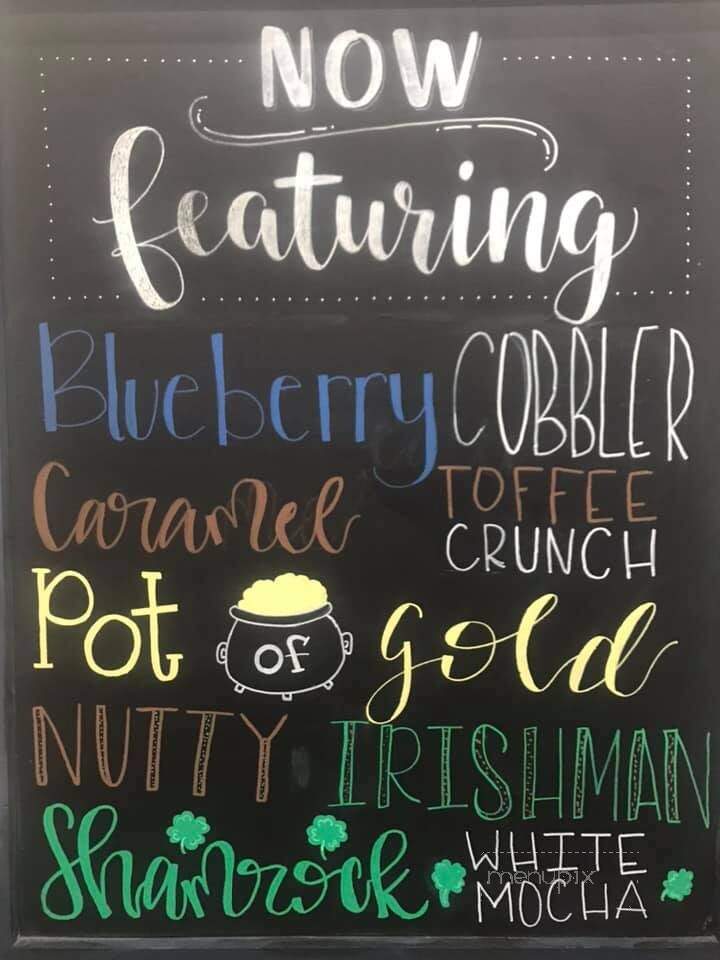 NOW
featuring
Blueberry COBBLER
Caramel TOFFEE
CRUNCH
Pot OF gold
NUTTY IRISHMAN
Shamrock WHITE
menupix
MOCHA